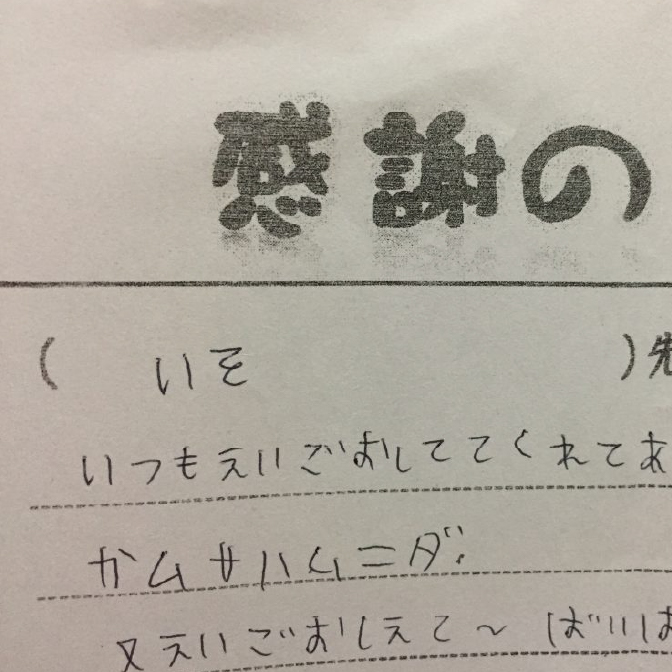 感謝の
( いそ )先
いつもえいごおしててくれてあ
カムサハムニダ.
又えいごおしえて〜 ばいば